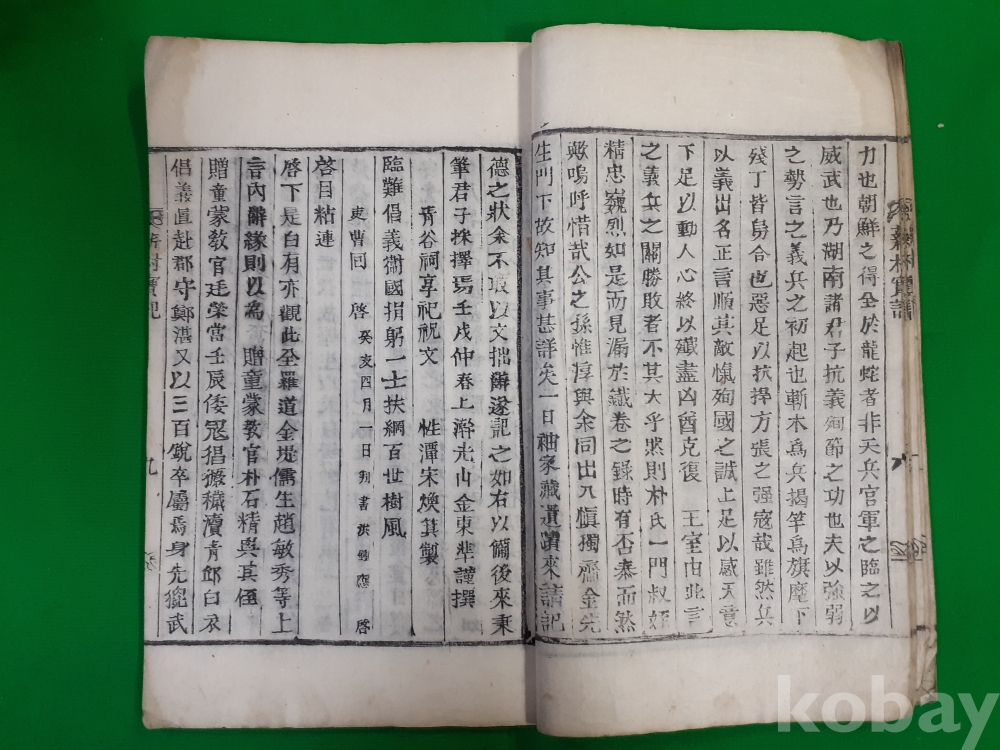 力也朝鮮之得全於龍蛇者非天兵官軍之臨之以
威武也乃湖南諸君子抗義殉節之功也夫以強弱
之勢言之義兵之初起也斬木爲兵揭竿爲旗麾下
殘丁皆烏合也惡足以抗捍方張之强寇哉雖然兵
以義出名正言順其敵愾殉國之誠上足以感天意
下足以動人心終以殲盡凶酋克復 王室由此言
之義兵之關勝敗者不其大乎然則朴氏一門叔姪
精忠巍烈如是而見漏於鐵卷之錄時有否泰而然
歟嗚呼惜哉公之孫惟淳與余同出入愼獨齋金先
生門下故知其事甚詳矣一日袖家藏遺蹟來請記
德之狀余不 以文拙辭遂記之如右以備後來秉
筆君子採擇焉壬戌仲春上澣光山金東準謹撰
靑谷祠享祀祝文 性潭宋煥箕製
臨難倡義衛國捐躬一士扶綱百世樹風
吏曹回 啓 癸亥四月一日判書洪 應 啓
啓目粘連
啓下是白有亦觀此全羅道金堤儒生趙敏秀等上
言內辭緣則以爲 贈童蒙敎官朴石精與其侄
贈童蒙敎官廷榮當壬辰倭寇猖獗穢瀆靑邱白衣
倡義直赴郡守鄭湛又以三百銳卒屬焉身先 武
六
九
kobay